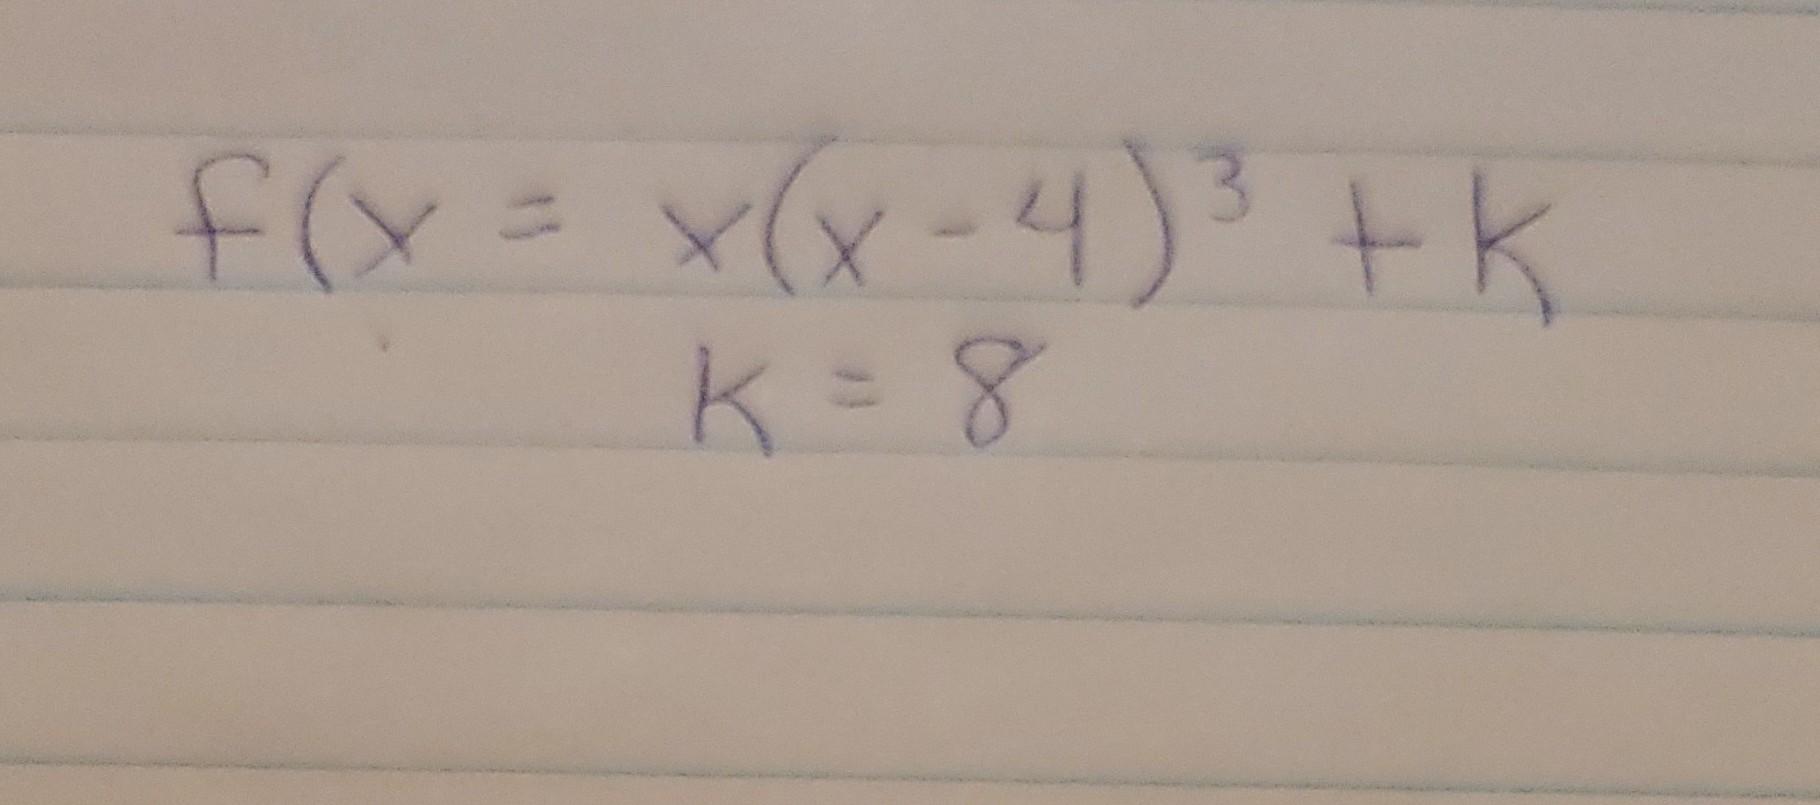 f(x = x(x-4)³ + k
k = 8